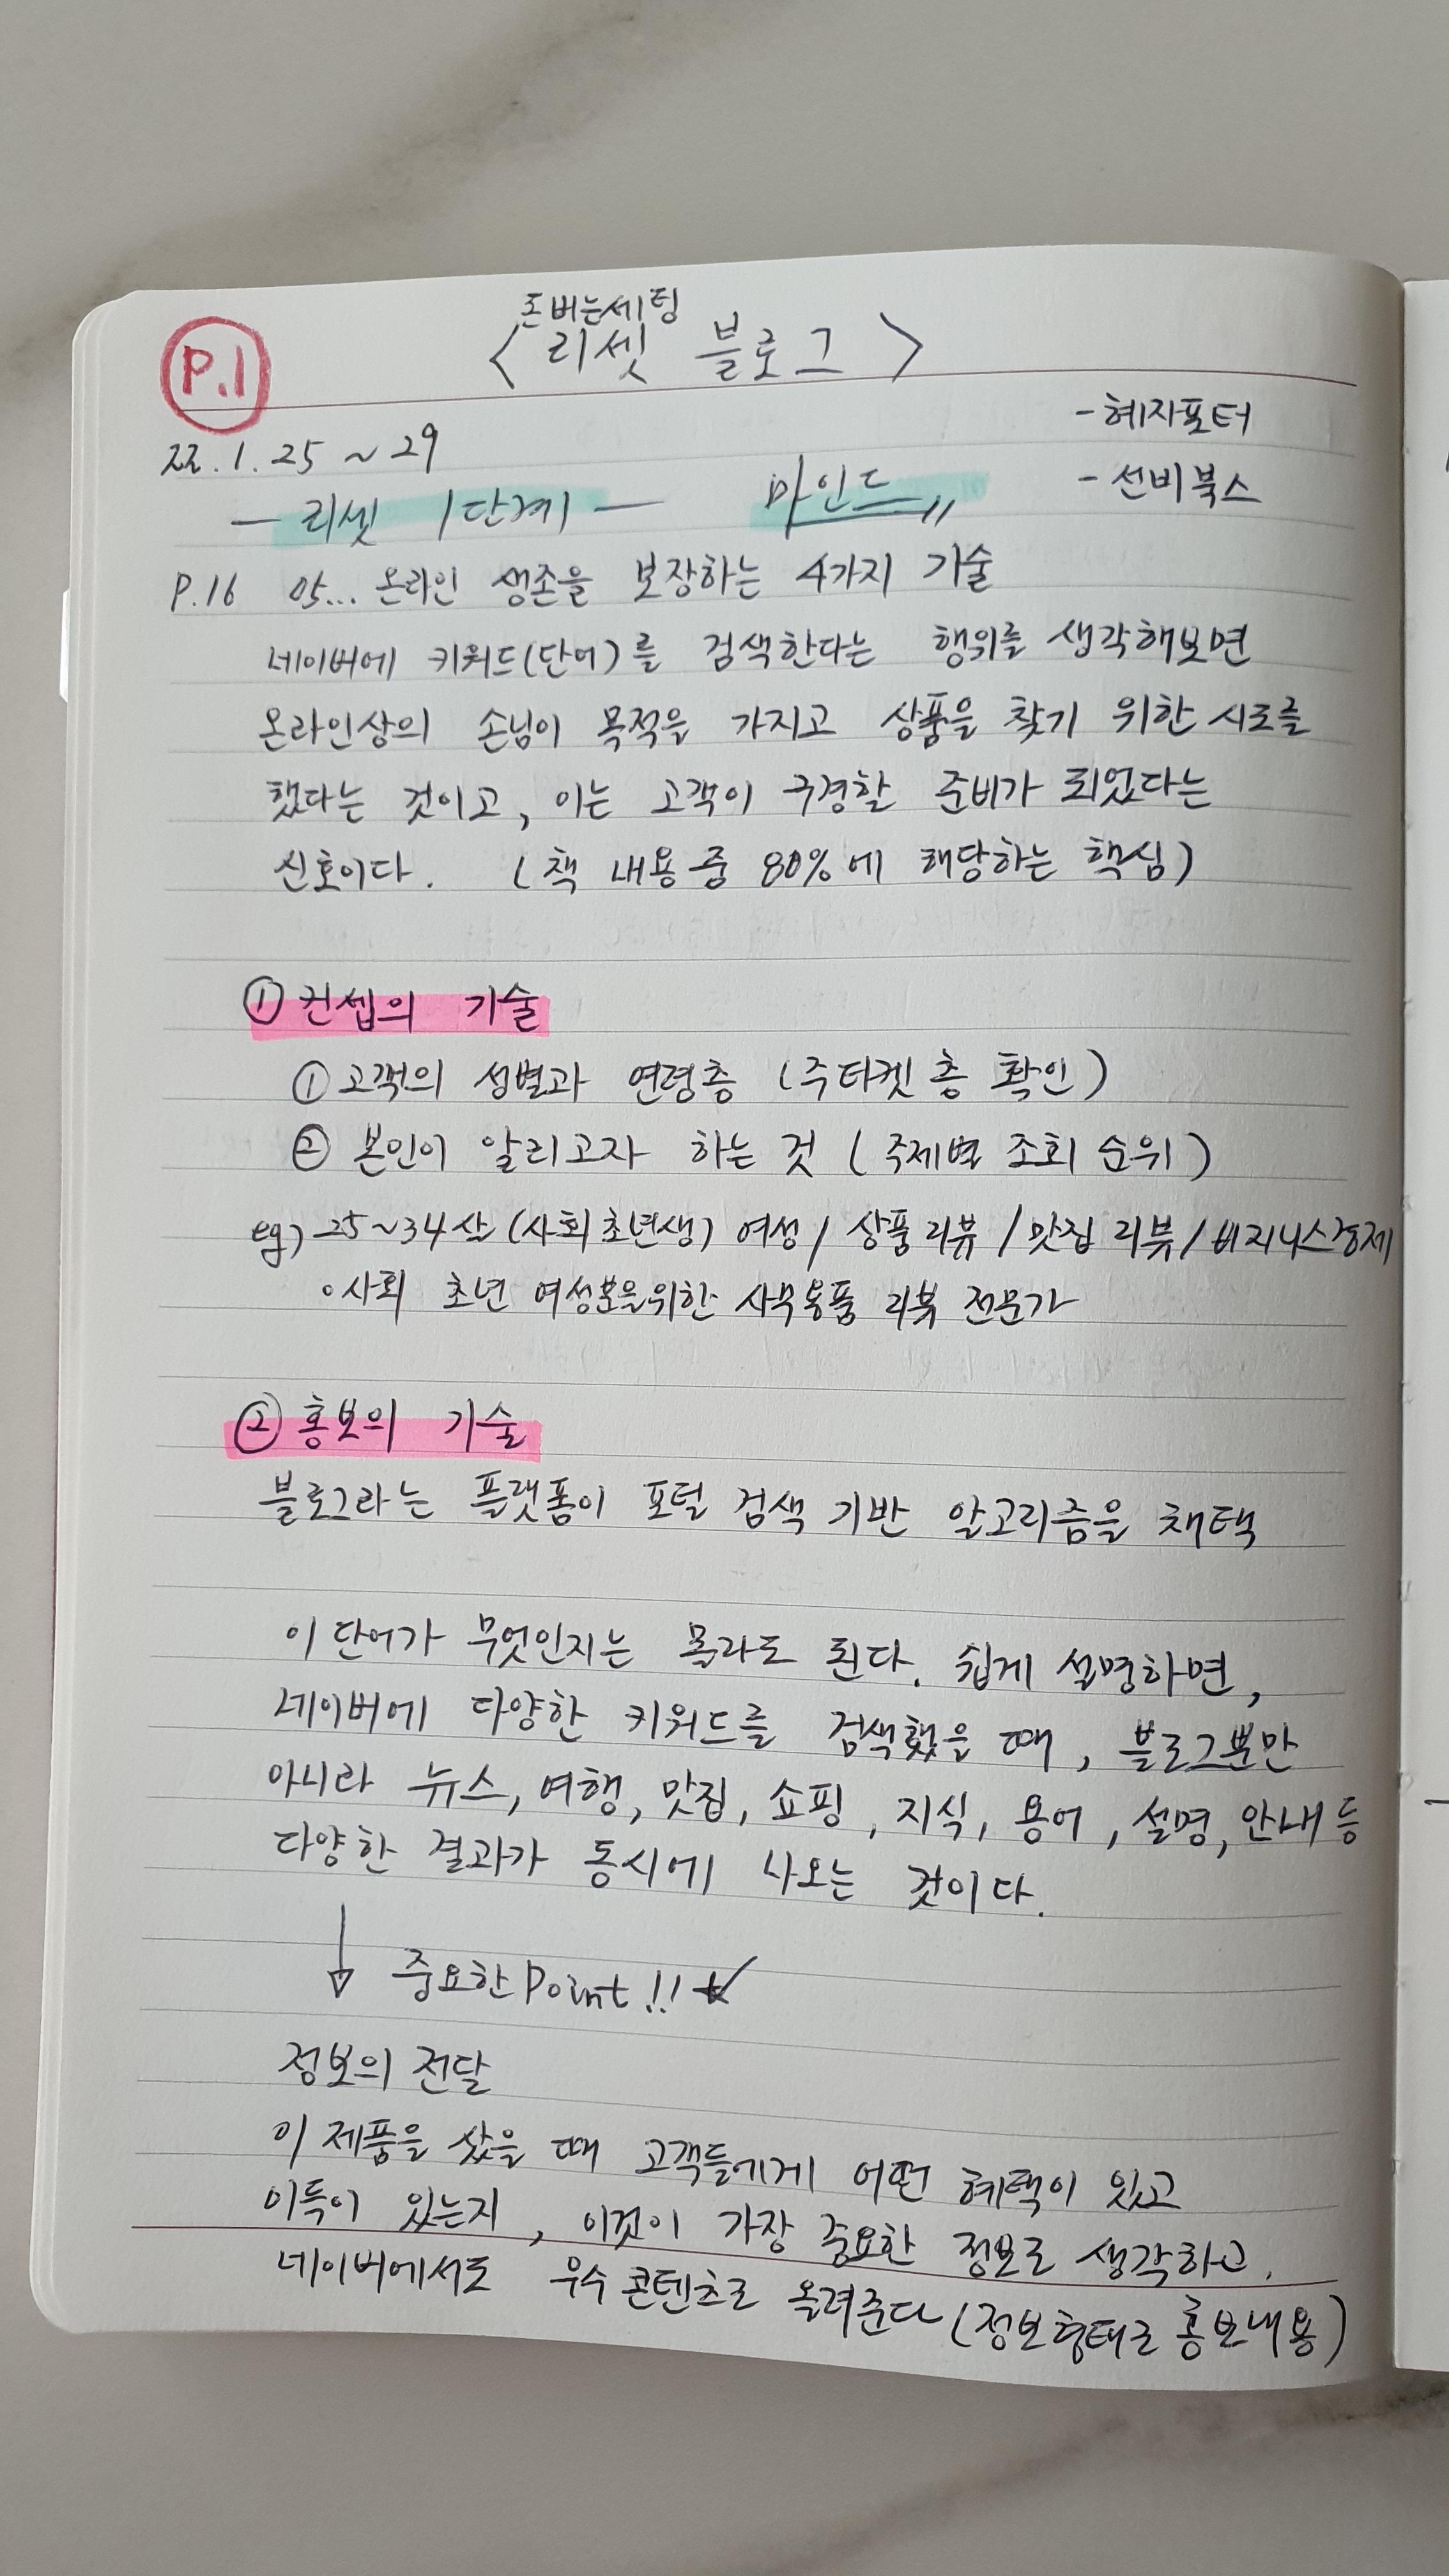 P.1
돈버는세팅
<리셋 블로그>
- 혜자포터
22.1.25 ~ 29
- 선비북스
- 리셋 1단계 - 마인드
P.16 05... 온라인 생존을 보장하는 4가지 기술
네이버에 키워드(단어)를 검색한다는 행위를 생각해보면
온라인상의 손님이 목적을 가지고 상품을 찾기 위한 시도를
했다는 것이고, 이는 고객이 구경할 준비가 되었다는
신호이다. (책 내용 중 80%에 해당하는 핵심)
① 컨셉의 기술
① 고객의 성별과 연령층 (주타켓 층 확인)
② 본인이 알리고자 하는 것 (주제별 조회 순위)
eg) 25~34살 (사회초년생) 여성 / 상품 리뷰 / 맛집 리뷰 / 비지니스경제
◦사회 초년 여성분을위한 사무용품 리뷰 전문가
② 홍보의 기술
블로그라는 플랫폼이 포털 검색 기반 알고리즘을 채택
이 단어가 무엇인지는 몰라도 된다. 쉽게 설명하면,
네이버에 다양한 키워드를 검색했을 때, 블로그뿐만
아니라 뉴스, 여행, 맛집, 쇼핑, 지식, 용어, 설명, 안내 등
다양한 결과가 동시에 나오는 것이다.
↓ 중요한 Point!!
정보의 전달
이 제품을 샀을 때 고객들에게 어떤 혜택이 있고
이득이 있는지, 이것이 가장 중요한 정보로 생각하고,
네이버에서도 우수 콘텐츠로 올려준다 (정보형태로 홍보내용)